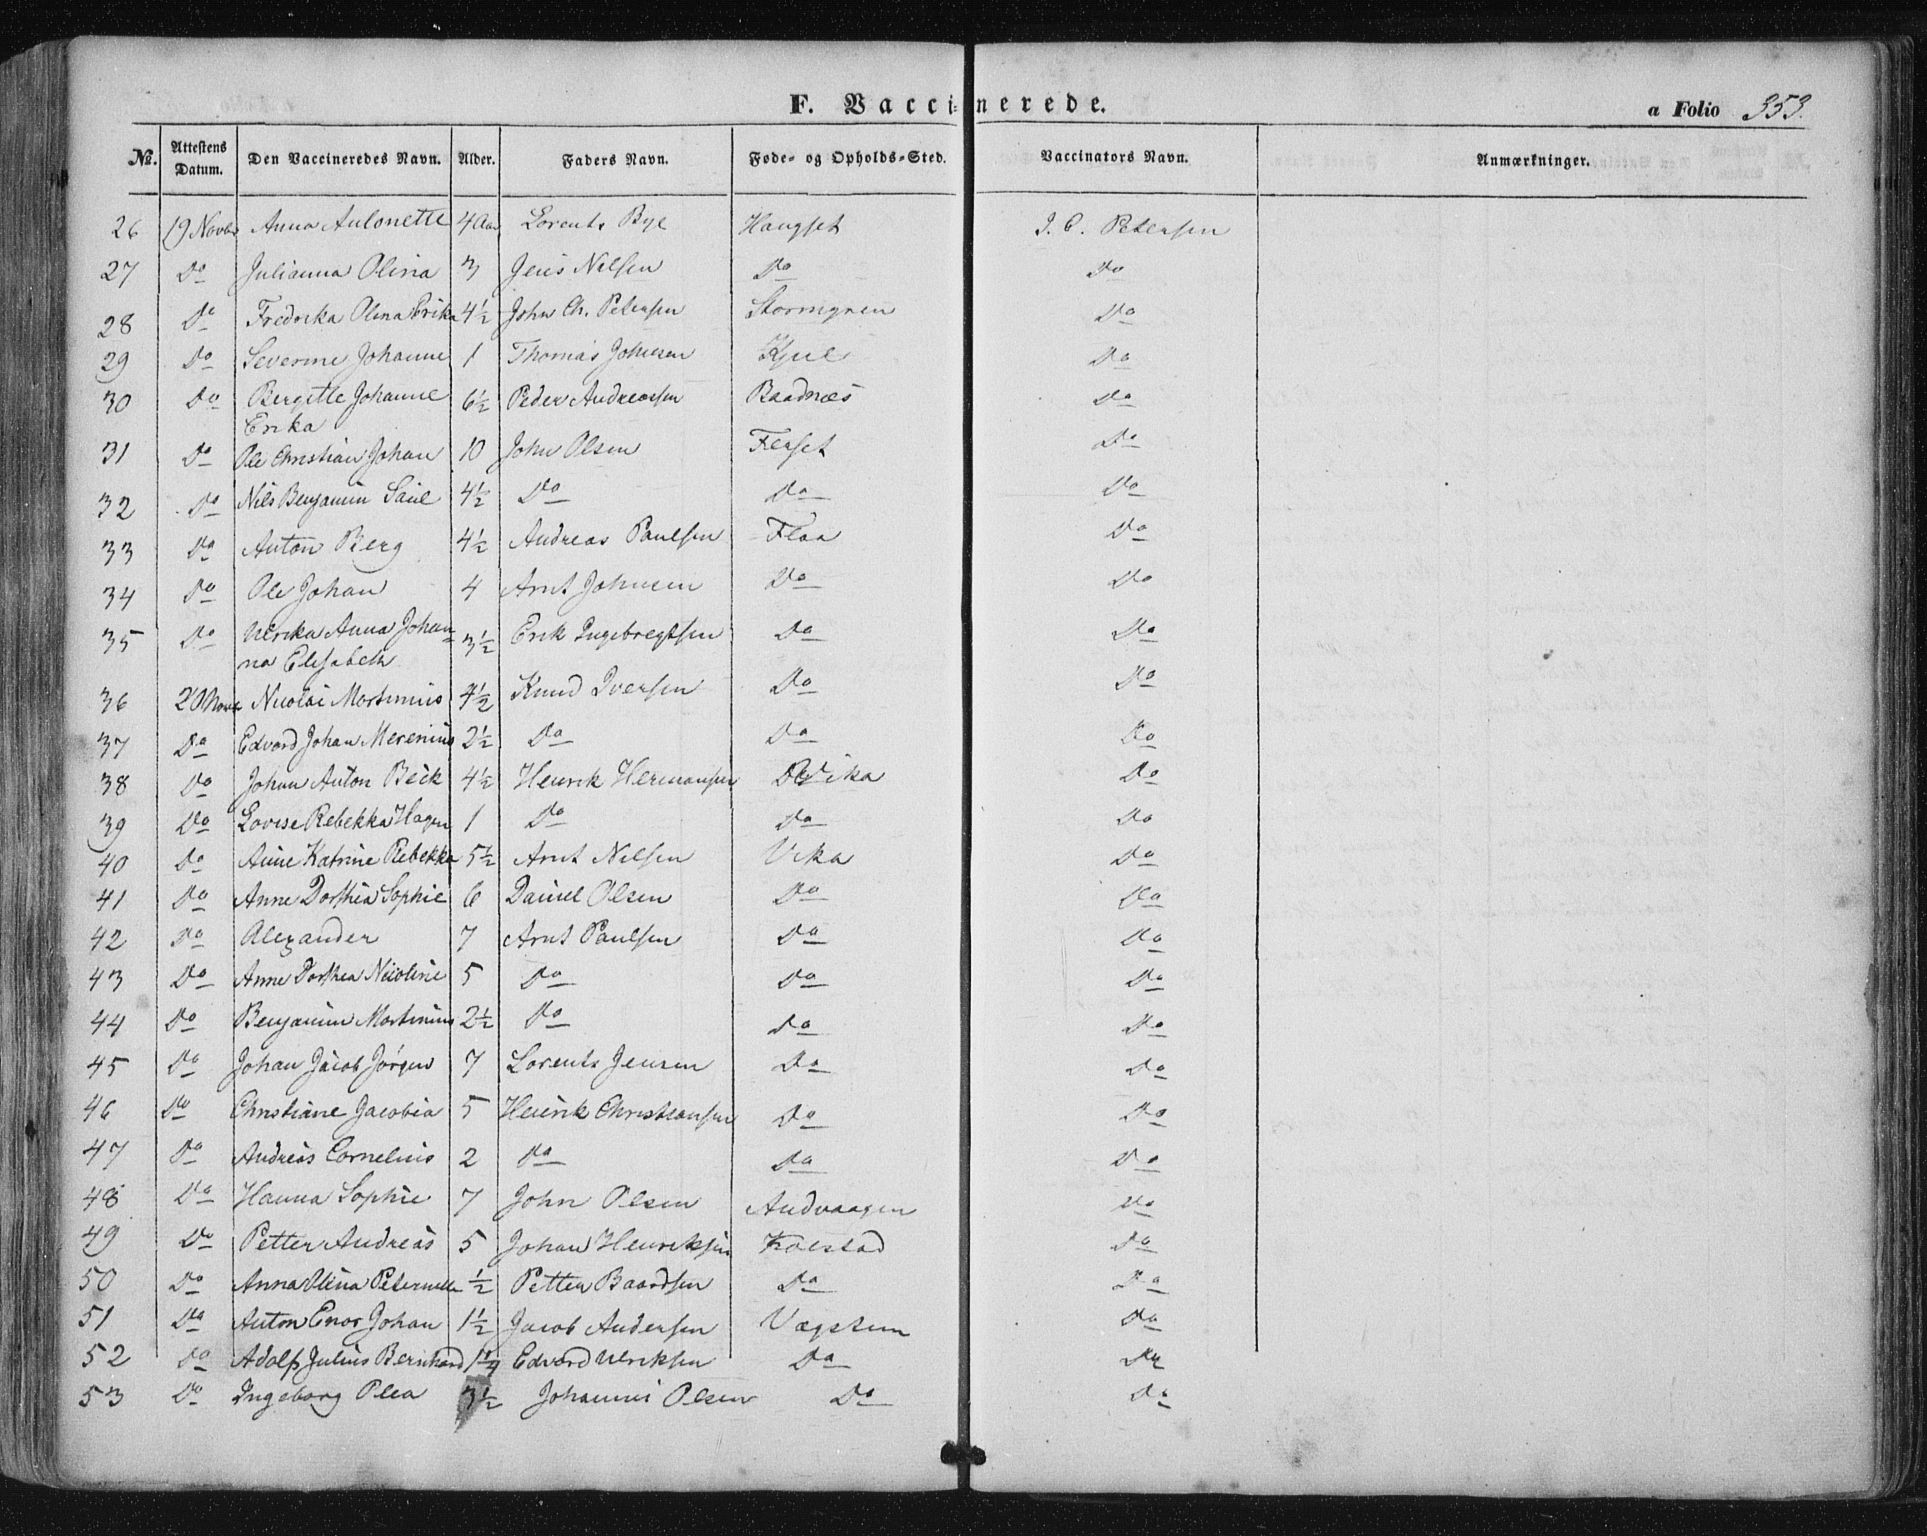 F. Vaccinerede.
a Folio 353.
No. Attestens Datum. Den Vaccineredes Navn. Alder. Faders Navn. Føde- og Opholds-Sted. Vaccinators Navn. Anmærkninger.
26 19 Novbr Anna Antonette 4 Aar Lorents Bye Haugset J. C. Petersen
27 Do Julianna Olina 3 Jens Nilsen Do Do
28 Do Fredrika Olina Erika 4½ John Ch. Petersen Stormyren Do
29 Do Severine Johanne 1 Thomas Johnsen Do
30 Do Bergitte Johanne 6½ Peder Andreassen Baadnæs Do
Erika
31 Do Ole Christian Johan 10 John Olsen Do
32 Do Nils Benjamin 4½ Do Do Do
33 Do Anton Berg 4½ Andreas Paulsen Flaa Do
34 Do Ole Johan 4 Arnt Johnsen Do Do
35 Do Ulrika Anna Johan- 3½ Erik Ingebregtsen Do Do
na Elisabeth
36 20 Novbr Nicolai Martinius 4½ Knud Iversen Do Do
37 Do Edvard Johan Merenius 2½ Do Do Do
38 Do Johan Anton Beck 4½ Henrik Hermansen Vika Do
39 Do Lovise Rebekka Hagen 1 Do Do Do
40 Do Anne Katrine Rebekka 5½ Arnt Nilsen Vika Do
41 Do Anne Dorthea Sophie 6 Daniel Olsen Do Do
42 Do Alexander 7 Arnt Paulsen Do Do
43 Do Anne Dorthea Nicoline 5 Do Do Do
44 Do Benjamin Martinius 2½ Do Do Do
45 Do Johan Jacob Jørgen 7 Lorents Jensen Do Do
46 Do Christiane Jacobia 5 Henrik Christiansen Do Do
47 Do Andreas Cornelius 2 Do Do Do
48 Do Hanna Sophie 7 John Olsen Andvaagen Do
49 Do Petter Andreas 5 Johan Henriksen Kolstad Do
50 Do Anna Olina Peternelle ½ Petter Baardsen Do Do
51 Do Anton Enos Johan 1½ Jacob Andersen Do
52 Do Adolf Julius Bernhard 1¼ Edvard Ulriksen Do Do
53 Do Ingeborg Olea 3½ Johannes Olsen Do Do